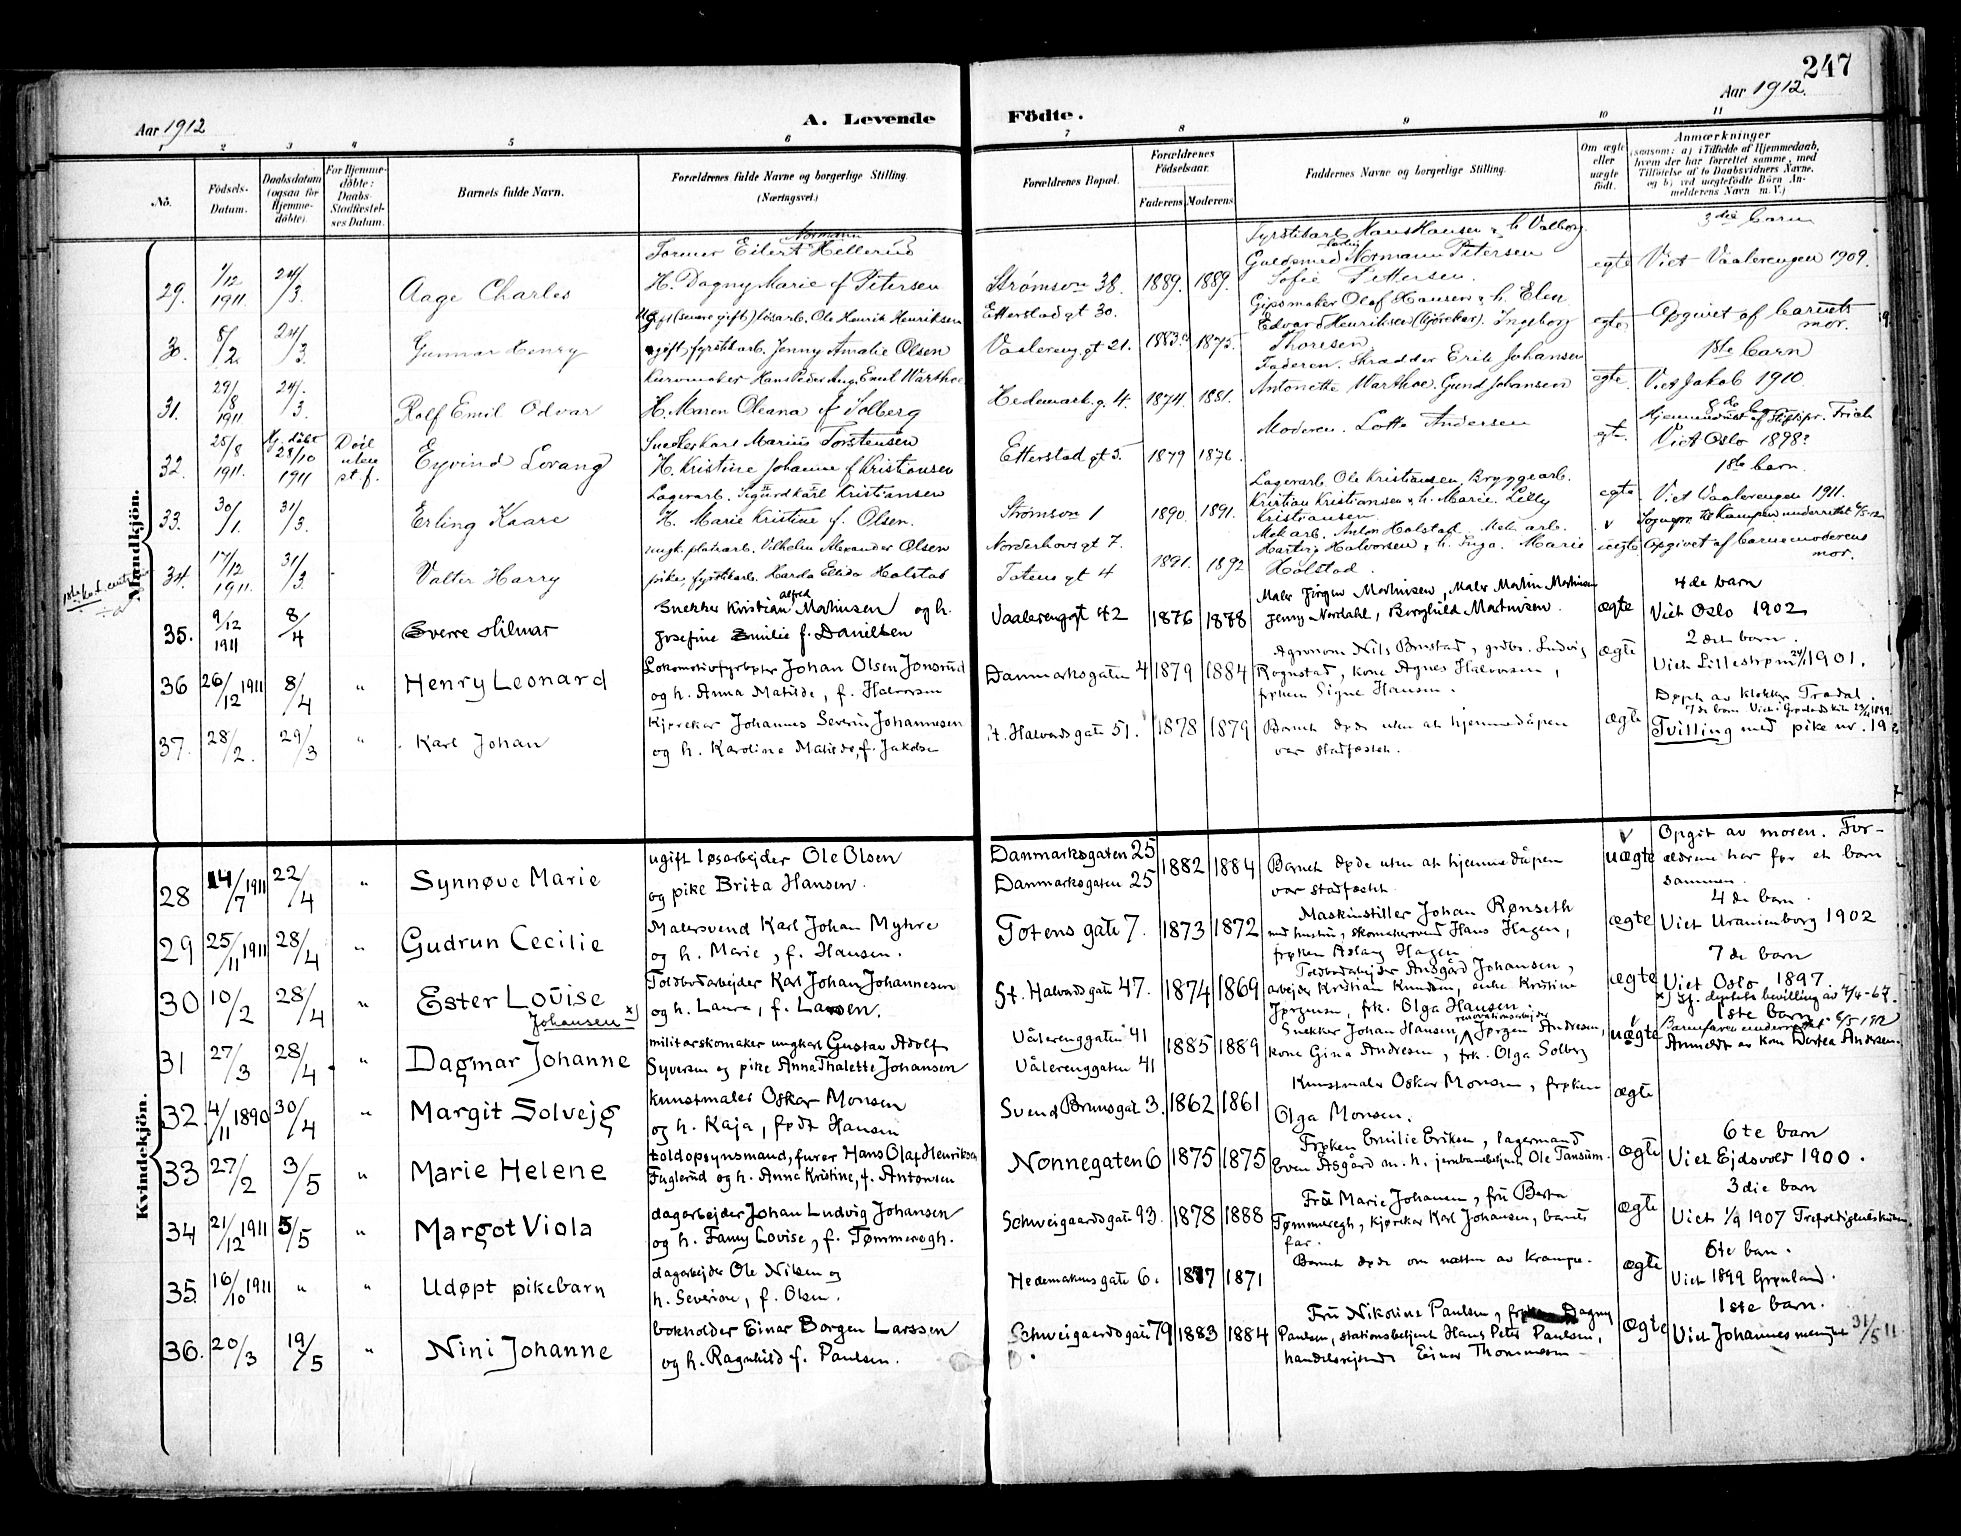 247
Aar 1912
A. Levende
Födte.
Aar 1912.
1 2 3 4 5 6 7 8 9 10 11
No.
Födsels-Datum.
Daabsdatum (ogsaa for Hjemme-döbte)
For Hjemme-döbte: Daabs-Stadfæstel-ses Datum.
Barnets fulde Navn.
Forældrenes fulde Navne og borgerlige Stilling.
(Næringsvei.)
Forældrenes Bopæl.
Forældrenes Födselsaar.
Faderens Moderens
Faddernes Navne og borgerlige Stilling.
Om ægte eller uægte født.
Anmærkninger
(saasom: a) i Tilfælde af Hjemmedaab,
hvem der har forrettet samme, med
Tilföielse af to Daabsvidners Navne,
og b) ved uægtefödte Börn An-
melderens Navn m. V.)
Mandkjön.
3die barn
Normann
Former Eilert Hellerud
Fyrstikarb. Hans Hansen & h. Valborg
29. 1/12 1911. 24/3. Aage Charles
H. Dagny Marie f Petersen
Strømsvn 38. 1889. 1889.
Guldsmed Normann Petersen
Sofie Pettersen.
egte Viet Vaalerengen 1909.
30. 8/2 24/3. Gunnar Henry
løsarb. Ole Henrik Henriksen
ugift fyrstikarb. Jenny Amalie Olsen
Etterstad gt 30.
Vaalereng gt 21. 1883. 1875.
Gipsmaker Olaf Hansen & h. Elen
Edvard Henriksen (kjørekar). Ingeborg
Thoresen.
Opgivet af barnets mor.
31. 29/8 1911 24/3. Rolf Emil Odvar
Kurvmaker Hans Peder Aug. Emil Warthoe
H. Maren Oleana f Solberg
Hedemark g. 4. 1874. 1881.
Faderen. Skrædder Erik Johansen
Antonette Warthoe. Gund Johansen
egte. 1ste barn
Viet Jakob 1910.
32. 25/8 1911. Hj. døbt 28/10 1911 Død uten st. f. Eyvind Lorang
Snedkerkarl Marius Torstensen
H. Kristine Johanne f Kristiansen
Etterstad gt 5. 1879 1876.
Moderen. Lotte Andersen
egt. Viet Oslo 1898?
33. 30/1. 31/3. Erling Kaare
Lagerarb. Sigurd Karl Kristiansen
H. Marie Kristine f. Olsen.
Strømsvn 1 1890. 1891.
Lagerarb. Ole Kristiansen, Bryggearb.
Kristian Kristiansen & h. Marie. Lilly
Kristiansen
egte 1ste barn.
Viet Vaalerengen 1911.
34. 17/12 1911. 31/3. Valter Harry
ungk. platearb. Vilhelm Alexander Olsen
pike, fyrstikarb. Harda Elida Holstad
Norderhovs gt 7.
Totens gt 4 1891. 1892
Mek arb. Anton Holstad. Mek arb.
Hartvig Halvorsen & h. Inga. Marie
Holstad.
uegte Opgivet af barnemoderens mor.
35. 9/12 1911 8/4 Sverre Hilmar
Snekker Kristian Alfred Martinsen og h.
Josefine Emilie f. Danielsen
Vaalerengt 42 1876 1878
Maler Jørgen Martinsen, Maler Martin Martinsen
Jenny Nordahl, Borghild Martinsen.
ægte 4de barn
Viet Oslo 1902
36 26/12 1911 8/4 " Henry Leonard
Lokomotivfyrbøter Johan Olsen Jonsrud
og h. Anna Matilde, f. Halvorsen
Danmarksgaten 4 1879 1884
Agronom Nils Brustad, grdbr. Ludvig
Rognstad, kone Agnes Halvorsen,
frøken Signe Hansen.
ægte 2det barn.
Viet Lillestrøm 1901.
Døpt av klokker Tradal.
37. 28/2. 29/3 " Karl Johan
Kjørekar Johannes Severin Johannesen
og h. Karoline Matilde, f. Jakobsen
St. Halvardsgate 51. 1878 1879
Barnet døde uten at hjemmedåpen
var stadfestet.
ægte 7de barn
Tvilling med pike nr. 19
Kvindekjön.
28 14/7 1911 22/4 " Synnøve Marie
ugift løsarbejder Ole Olsen
og pike Brita Hansen.
Danmarksgaten 25
Danmarksgaten 25 1882 1884
Barnet døde uten at hjemmedåpen
var stadfestet.
uægte Opgit av moren. For-
ældrene har før et barn
sammen.
29 25/11 1911 28/4 " Gudrun Cecilie
Malersvend Karl Johan Myhre
og h. Marie, f. Hansen.
Totens gate 7. 1873 1872
Maskinstiller Johan Rønseth
med hustru, skomakersvend Hans Hagen,
frøken Aslaug Hagen
ægte 4de barn.
Viet Uranienborg 1902
30 10/2 28/4 " Ester Lovise x)
Johansen
Toldbodarbejder Karl Johan Johannesen
og h. Laura, f. Larsen.
St. Halvardsgate 47. 1874 1869
Toldbodarbejder Ansgård Johansen,
arbejder Kristian Knudsen, enke Kristine
Jørgensen, frk. Olga Hansen.
ægte 7de barn
Viet Oslo 1897.
x) Jf. dpts bevilling av 7/4-67.
31 27/3 28/4 " Dagmar Johanne
militærskomaker ungkarl Gustav Adolf
Syversen og pike Anna Thalette Johansen
Vålerenggaten 41
Vålerenggaten 41 1885 1889
Snekker Johan Hansen, renovationsarbejder Jørgen Andresen,
kone Gina Andresen, frk. Olga Solberg
uægte 1ste barn
Barnefaren underrettet 6/5 1912
Anmeldt av kone Dortea Andersen.
32 4/11 1890 30/4 " Margit Solvejg
Kunstmaler Oskar Monsen
og h. Kaja, født Hansen
Svend Brunsgt 3. 1862 1861
Kunstmaler Oskar Monsen, frøken
Olga Monsen.
ægte
33 27/2 3/5 " Marie Helene
toldopsynsmand, furer Hans Olaf Henriksen
Fuglerud og h. Anna Kristine, f. Antonsen
Nonnegaten 6 1875 1875
Frøken Emilie Eriksen, lagermand
Even Asgård m. h. jernbanebetjent Ole Tansum.
ægte 6te barn
Viet Ejdsvoll 1900.
34 21/12 1911 5/5 " Margot Viola
dagarbejder Johan Ludvig Johansen
og h. Fanny Lovise, f. Tømmeregh.
Schweigaardsgate 93. 1878 1888
Fru Marie Johansen, fru Berta
Tømmeregh, kjørekar Karl Johansen, barnets
far.
ægte 3die barn
Viet 1/9 1907 Trefoldighedskirken
35 16/10 1911 " " Udøpt pikebarn
dagarbejder Ole Nilsen og
h. Severine, f. Olsen.
Hedemarkensgate 6. 1877 1871
Barnet døde om natten av krampe.
ægte 6te barn.
Viet 1899 Grønland.
36. 20/3 19/5 " Nini Johanne
bokholder Einar Borgen Larssen
og h. Ragnhild f. Paulsen.
Schweigaardsgate 79 1883 1884
Fru Nikoline Paulsen, frøken Dagny
Paulsen, stationsbetjent Hans Peter Paulsen,
handelsrejsende Einar Thommesen
ægte 1ste barn.
Viet Johannes menighet 31/5 11